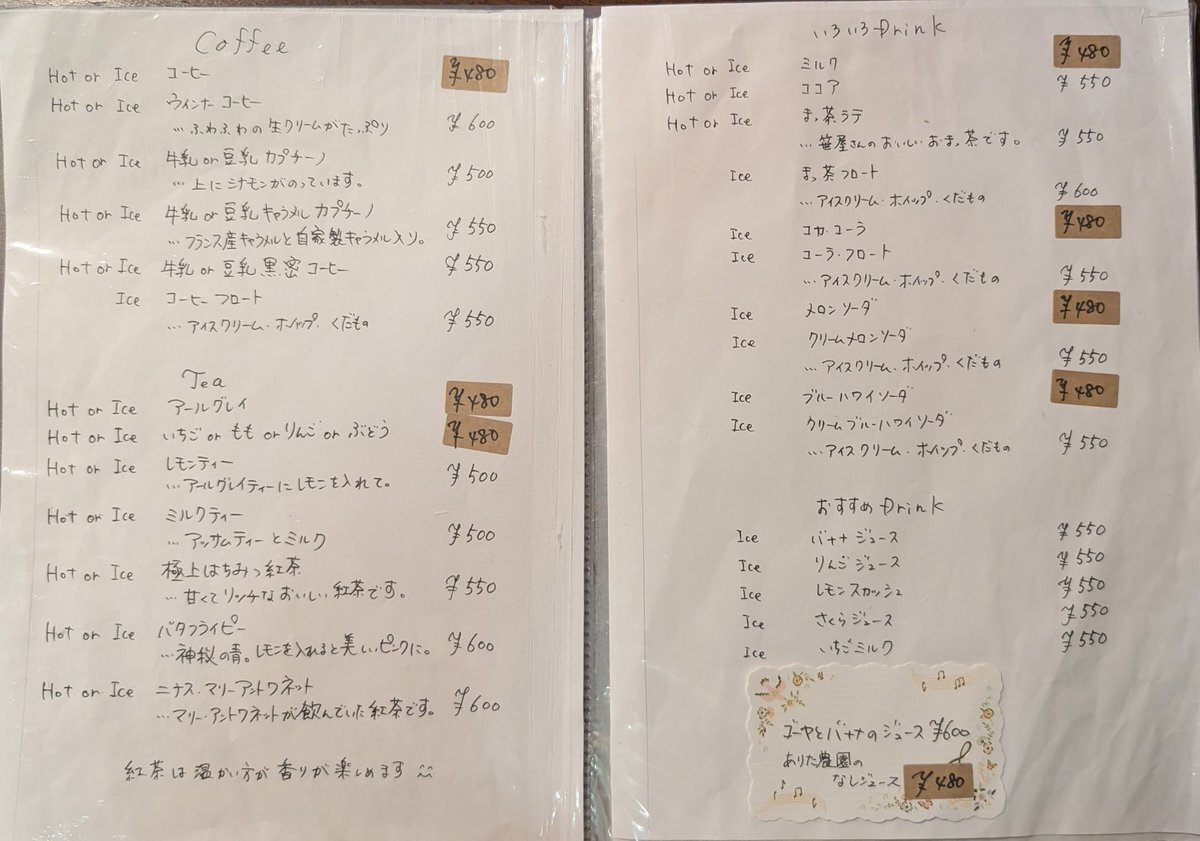 Coffee
Hot or Ice コーヒー ¥480
Hot or Ice ウィンナーコーヒー
…ふわふわの生クリームがたっぷり ¥600
Hot or Ice 牛乳 or 豆乳 カプチーノ
…上にシナモンがのっています。 ¥500
Hot or Ice 牛乳 or 豆乳 キャラメル カプチーノ
…フランス産キャラメルと自家製キャラメル入り。 ¥550
Hot or Ice 牛乳 or 豆乳 黒密 コーヒー ¥550
Ice コーヒーフロート
…アイスクリーム・ホイップ・くだもの ¥550
Tea
Hot or Ice アールグレイ ¥480
Hot or Ice いちご or もも or りんご or ぶどう ¥480
Hot or Ice レモンティー
…アールグレイティーにレモンを入れて。 ¥500
Hot or Ice ミルクティー
…アッサムティーとミルク ¥500
Hot or Ice 極上はちみつ紅茶
…甘くてリッチなおいしい紅茶です。 ¥550
Hot or Ice バタフライピー
…神秘の青。レモンを入れると美しいピンクに。 ¥600
Hot or Ice ニナス・マリーアントワネット
…マリー・アントワネットが飲んでいた紅茶です。 ¥600
紅茶は温かい方が香りが楽しめます
いろいろDrink
Hot or Ice ミルク ¥480
Hot or Ice ココア ¥550
Hot or Ice まっ茶ラテ
…笹屋さんのおいしいおまっ茶です。 ¥550
Ice まっ茶フロート
…アイスクリーム・ホイップ・くだもの ¥600
Ice コカ・コーラ ¥480
Ice コーラ・フロート
…アイスクリーム・ホイップ・くだもの ¥550
Ice メロンソーダ ¥480
Ice クリームメロンソーダ
…アイスクリーム・ホイップ・くだもの ¥550
Ice ブルーハワイソーダ ¥480
Ice クリームブルーハワイソーダ
…アイスクリーム・ホイップ・くだもの ¥550
おすすめDrink
Ice バナナジュース ¥550
Ice りんごジュース ¥550
Ice レモンスカッシュ ¥550
Ice さくらジュース ¥550
Ice いちごミルク ¥550
ゴーヤとバナナのジュース ¥600
ありた農園の
なしジュース ¥480